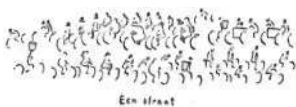 Een straat